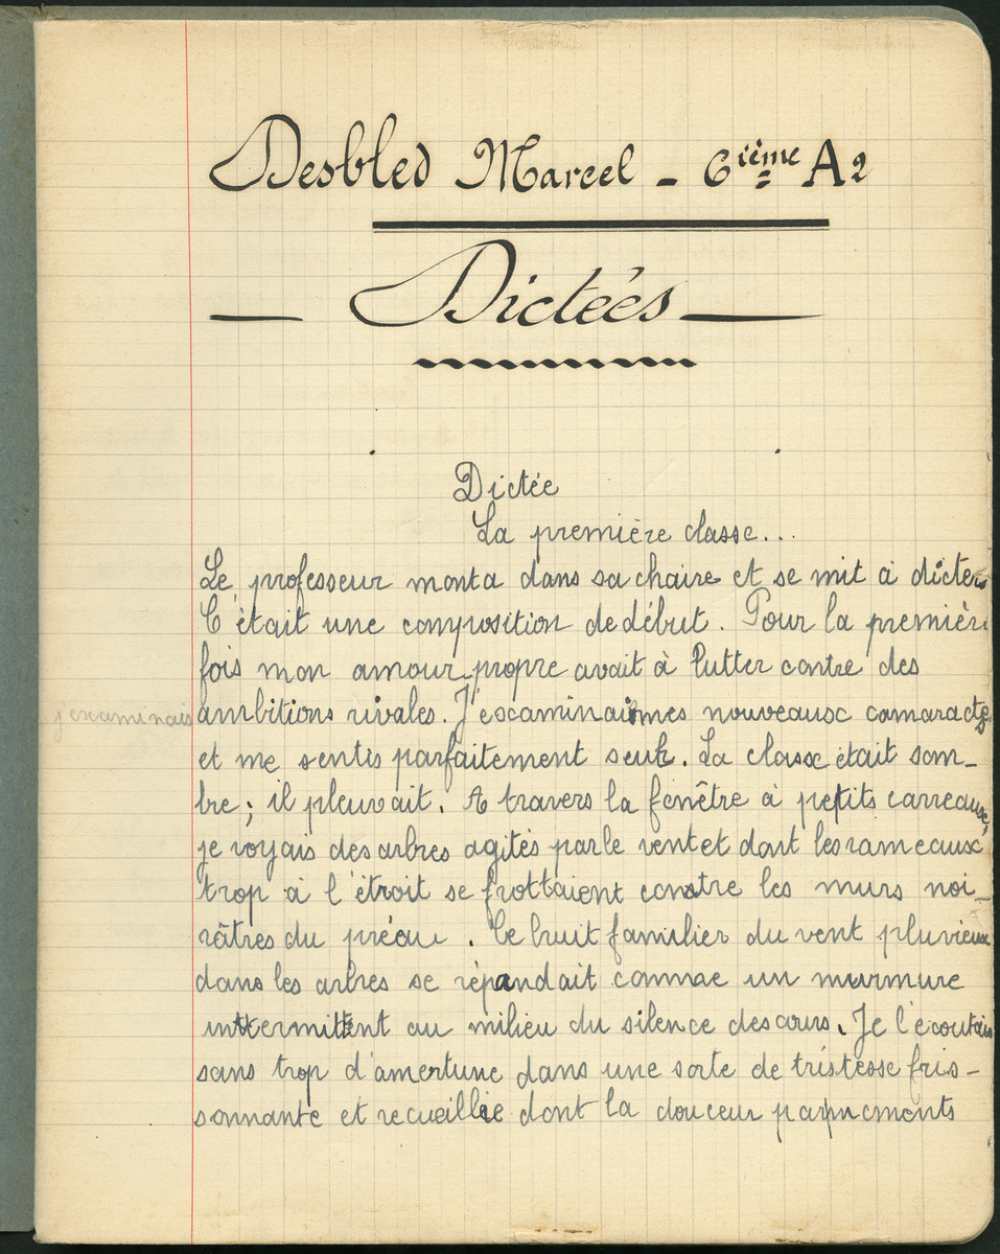 Desbled Marcel - 6ième A2
Dictées
Dictée
La première classe...
Le professeur monta dans sa chaire et se mit à dicter
C'était une composition de début. Pour la première
fois mon amour-propre avait à lutter contre des
j'examinais
ambitions rivales. J'examinai mes nouveaux
et me sentis parfaitement seul. La classe était som-
bre ; il pleuvait. A travers la fenêtre à petits carreaux,
je voyais des arbres agités par le vent et dont les rameaux
trop à l'étroit se frottaient contre les murs noi-
râtres du préau. Ce bruit familier du vent pluvieux
dans les arbres se répandait comme un murmure
intermittent au milieu du silence des cours. Je l'écoutais
sans trop d'amertume dans une sorte de tristesse fris-
sonnante et recueillie dont la douceur par moments